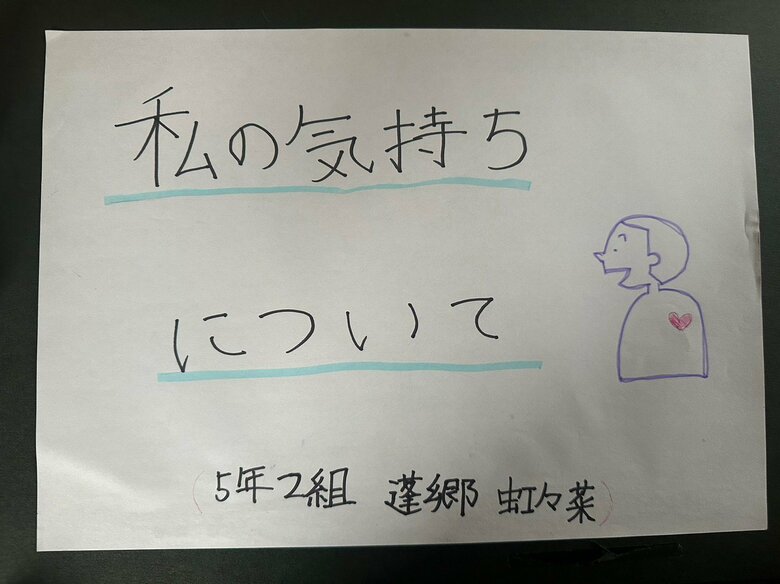 私の気持ち
について
(5年2組 蓬郷 虹々菜)